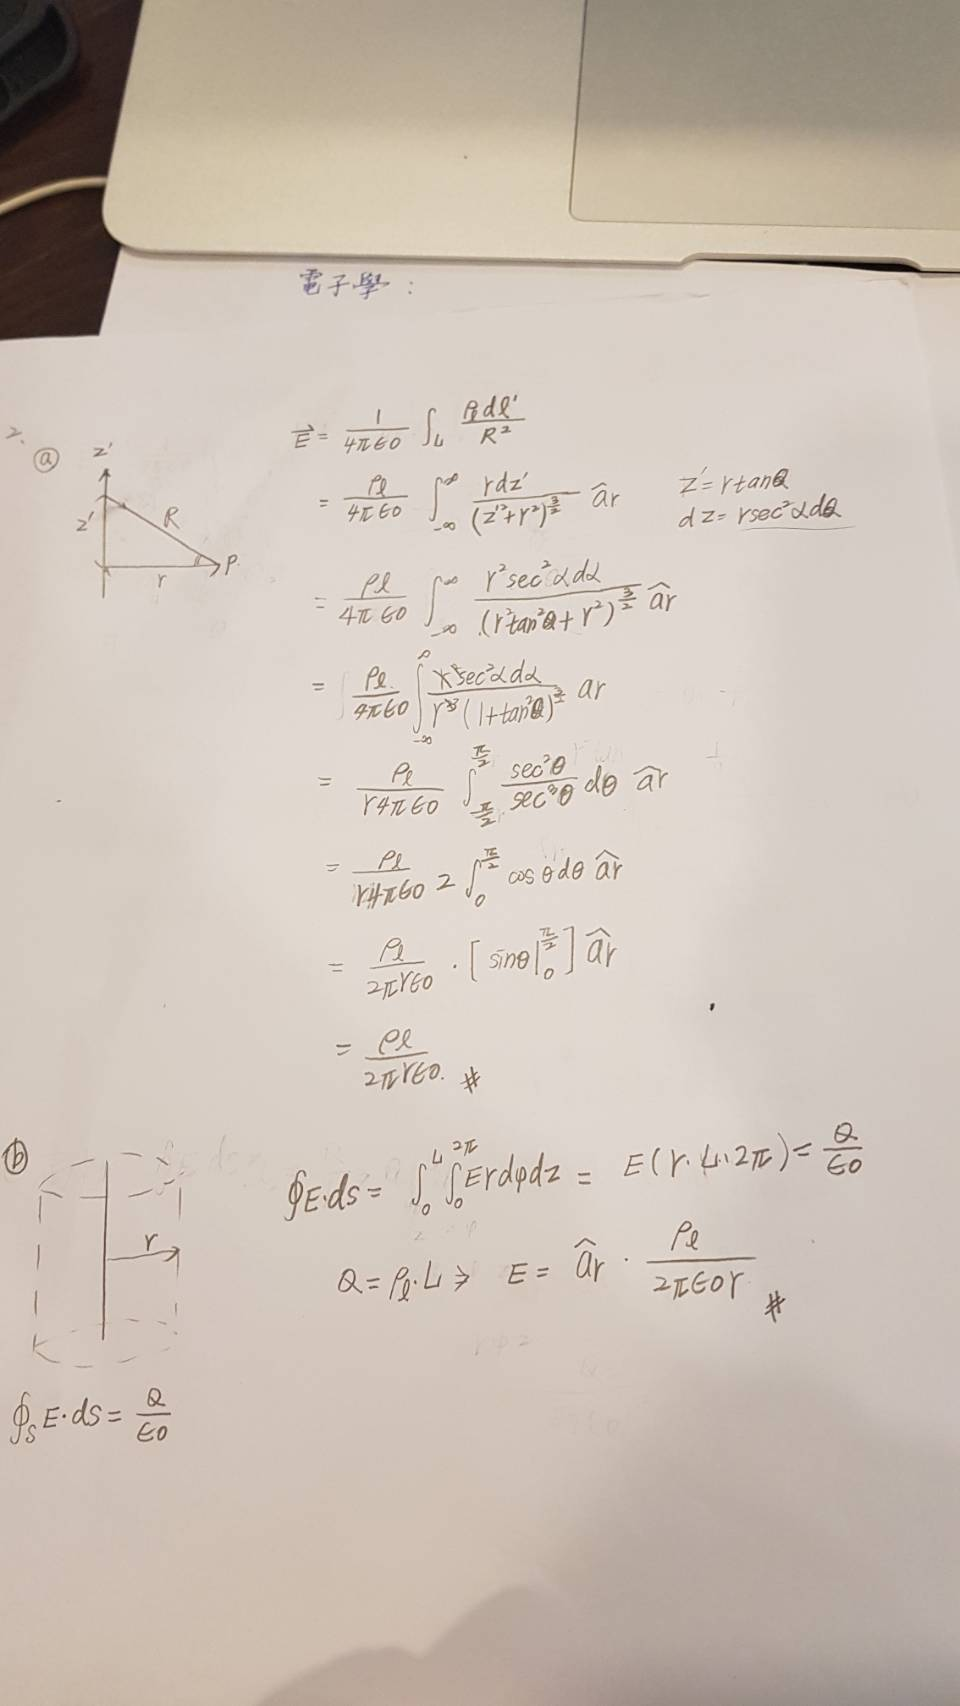 電子學：
2.
ⓐ
z'
z'
R
P.
r
E⃗ = 1/4πϵ0 ∫L ρl dl'/R²
= ρl/4πϵ0 ∫-∞^∞ rdz'/(z'²+r²)^(3/2) âr
z'=rtanθ
dz=rsec²αdθ
= ρl/4πϵ0 ∫-∞^∞ r²sec²αdα/(r²tan²θ+r²)^(3/2) âr
= ρl/4πϵ0 ∫-∞^∞ r²sec²αdα/r³(1+tan²θ)^(3/2) ar
= ρl/r4πϵ0 ∫π/2^π/2 sec²θ/sec³θ dθ âr
= ρl/r4πϵ0 2∫0^π/2 cosθdθ âr
= ρl/2πrϵ0 · [sinθ|0^π/2] âr
= ρl/2πrϵ0. #
ⓑ
r
∮E·ds = ∫0^L ∫0^2π Erdφdz = E(r·L·2π) = Q/ϵ0
Q=ρl·L ⇒ E = âr · ρl/2πϵ0r #
∮s E·ds = Q/ϵ0